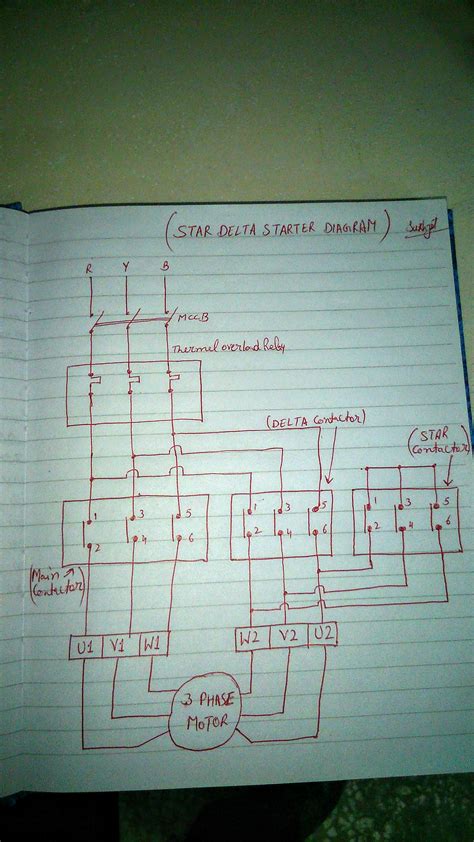 (STAR DELTA STARTER DIAGRAM)
R Y B
MCCB
Thermal overload Relay
(DELTA Contactor)
(STAR Contactor)
1 3 5
2 4 6
1 3 5
2 4 6
1 3 5
2 4 6
(Main Contactor)
U1 V1 W1
W2 V2 U2
3 PHASE
MOTOR